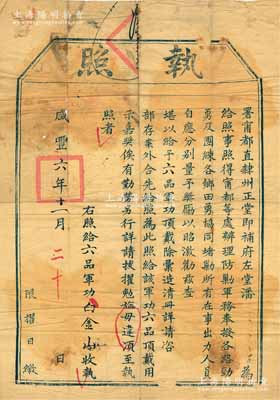 執照
署甯都直隸州正堂即補府左堂潘 為
給照事照得甯都等處辦理防勦軍務案撥各路勁
勇及團練各鄉田勇協同堵勦所有在事出力人員
自應分別量予獎勵以昭激勸茲查
堪以給予六品軍功頂戴除彙造清冊詳請咨
部存案外合先給照為此照給該軍功六品頂戴用
示嘉獎俟有勤勞另行詳請拔擢勉旃毋違須至執
照者
右照給六品軍功 金山收執
咸豐六年十一月二十日
限 日繳